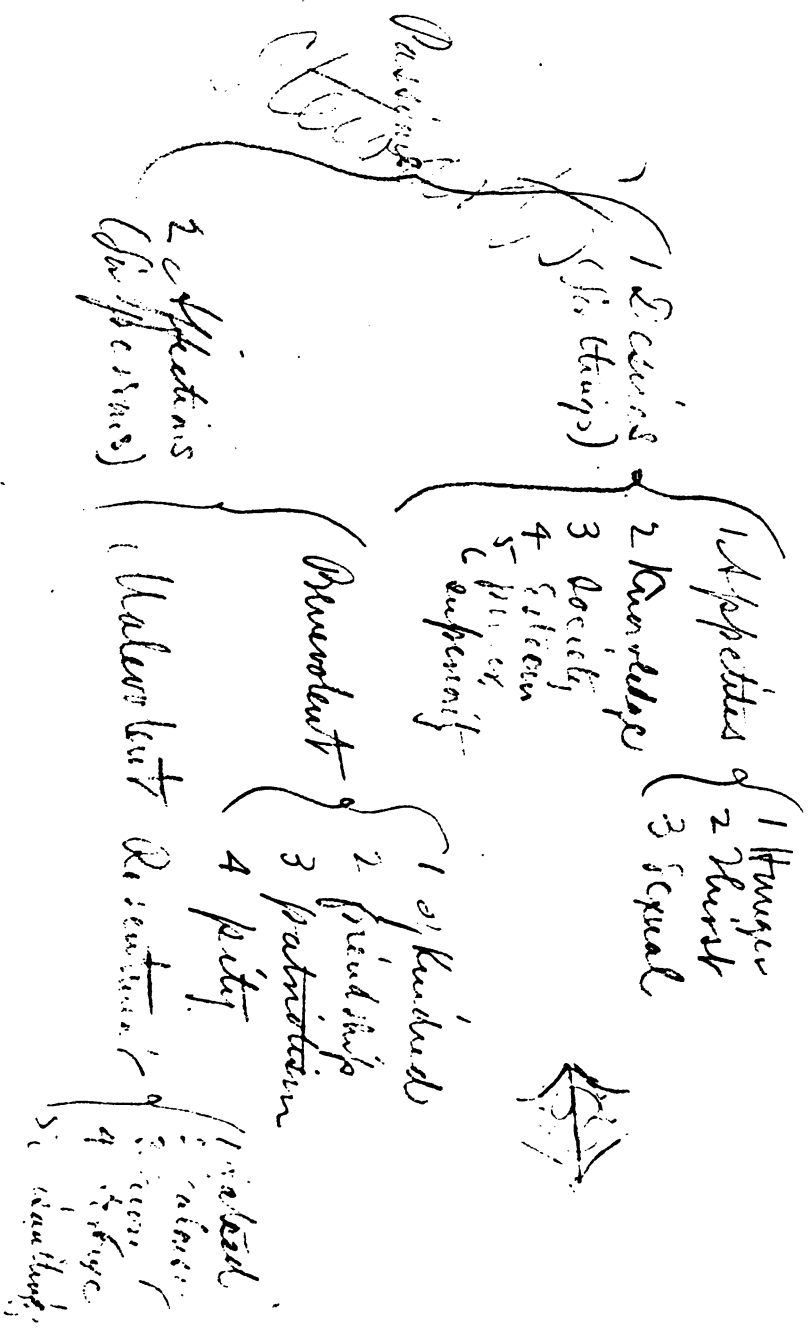 Passions
1 Desires
(for things)
1 Appetites
1 Hunger
2 Thirst
3 sexual
2 Knowledge
3 Society
4 Esteem
5 power
6 superiority
2 Affections
(for persons)
Benevolent
1 of Kindred
2 friendship
3 patriotism
4 pity
Malevolent Resentment
1 hatred
2 jealousy
4
5